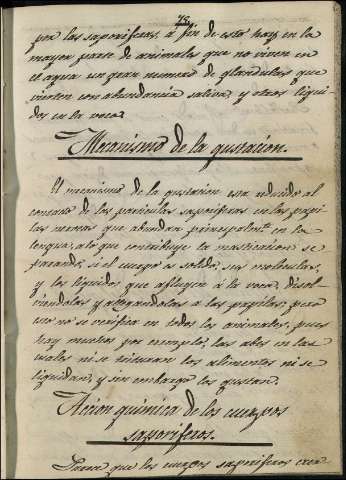 78.
por las saporiferas, á fin de esto hay en la
mayor parte de animales que no viven en
el agua un gran numero de glandulas que
vierten con abundancia saliva y otros liqui-
dos en la voca.
Mecanismo de la gustacion.
El mecanismo de la gustacion esta reducido al
contacto de las particulas saporiferas en las papi-
las nerveas que abundan principalmte en la
lengua; a lo que contribuye la masticacion se
parando, si el cuerpo es solido, sus moleculas,
y los liquidos que afluyen á la voca, disol-
viendolas y a las papilas; pero
no se verifica en todos los animales, pues
hay muchos por ejemplo, las abes en las
cuales ni se trituran los alimentos ni se
liquidan, y sin embargo los gustan.
Accion quimica de los cuerpos
saporiferos.
Parece que los cuerpos saporiferos